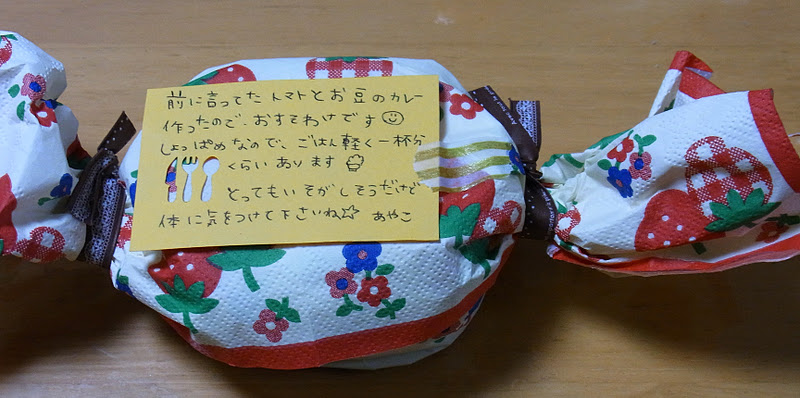 前に言ってたトマトとお豆のカレー
作ったので、おすそわけです
しょっぱめなので、ごはん軽く一杯分
くらいあります
とってもいそがしそうだけど
体に気をつけて下さいね☆ あやこ